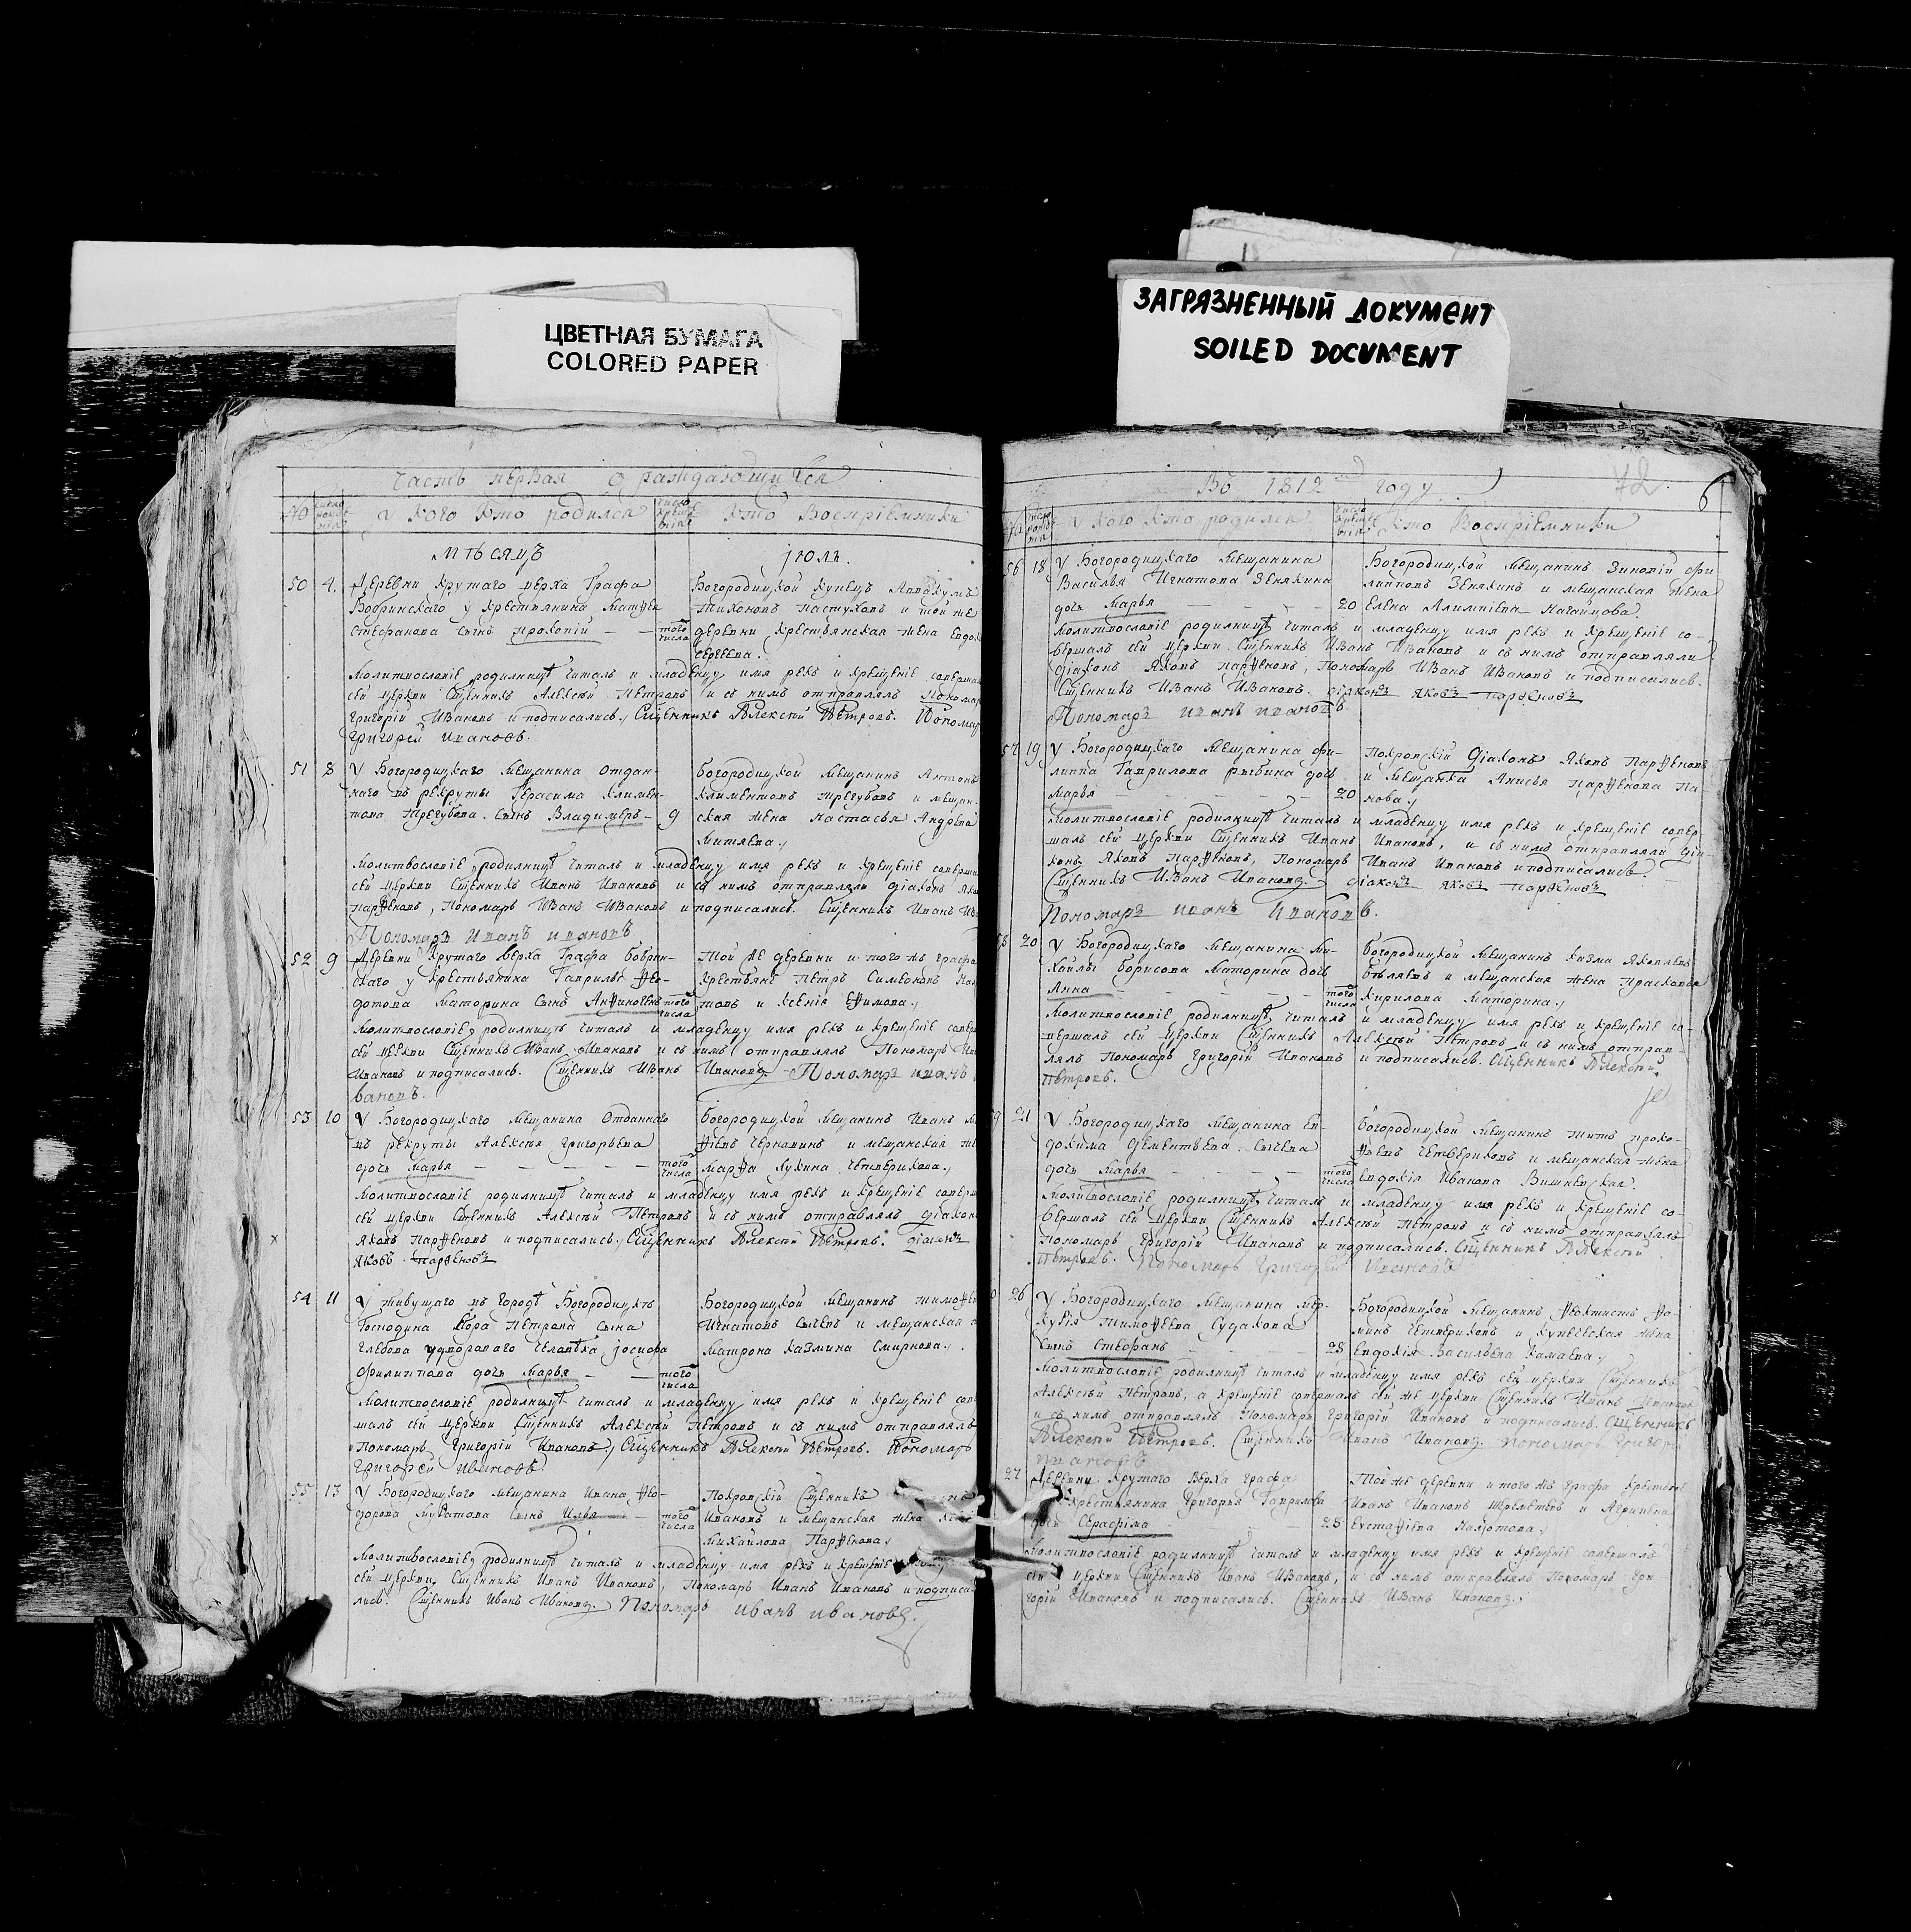 ЦВЕТНАЯ БУМАГА
COLORED PAPER
ЗАГРЯЗНЕННЫЙ ДОКУМЕНТ
SOILED DOCUMENT
Часть первая о раждающихся
у кого кто родился
кто восприемники
мѣсяцъ іюль.
50 4. Деревни Крутаго верха Графа
Бобринскаго у крестьянина Матвея
Стефанова сынъ Прокопій
того числа
Богородицкой купецъ Аввакумъ
Тихоновъ Пастуховъ и той же
деревни крестьянская жена Евдок
Сергеева.
Молитвословіе родилницѣ читалъ и младенцу имя рекъ и крещеніе соверша
сей церкви Сщенникъ Алексѣй Петровъ и съ нимъ отправлялъ Пономар
Григорій Ивановъ и подписались. Сщенникъ Алексѣй Петровъ. Пономар
Григорей Ивановъ.
51 8 У Богородицкаго мещанина отдан-
наго въ рекруты Герасима Климен-
това Трегубова сынъ Владимеръ 9
Богородицкой мещанинъ Антонъ
Климентовъ Трегубовъ и мещан-
ская жена Настасья Андреева
Митяева.
Молитвословіе родилницѣ читалъ и младенцу имя рекъ и крещеніе соверша
сей церкви Сщенникъ Иванъ Ивановъ и съ нимъ отправляли діаконъ Яко
Парѳеновъ, Пономарь Иванъ Ивановъ и подписались. Сщенникъ Иванъ Ива
Пономарь Иванъ Ивановъ
52 9 Деревни Крутаго верха Графа Бобрин-
скаго у крестьянина Гаврилы Ѳео-
дотова Маторина сынъ Анѳиногенъ
того числа
Той же деревни и того жъ графа
крестьяне Петръ Симеоновъ
товъ и Ксенія Ефимова.
Молитвословіе родилницѣ читалъ и младенцу имя рекъ и крещеніе совер
сей церкви Сщенникъ Иванъ Ивановъ и съ нимъ отправлялъ Пономарь Ив
Ивановъ и подписались. Сщенникъ Иванъ Ивановъ. Пономарь Иванъ И
вановъ.
53 10 У Богородицкаго мещанина отданнаго
въ рекруты Алексѣя Григорьева
дочь Марья
того числа
Богородицкой мещанинъ Иванъ
и мещанская же
Марѳа Лукина Четверикова.
Молитвословіе родилницѣ читалъ и младенцу имя рекъ и крещеніе соверш
сей церкви Сщенникъ Алексѣй Петровъ и съ нимъ отправлялъ діакон
Яковъ Парѳеновъ и подписались. Сщенникъ Алексѣй Петровъ. Діаконъ
Яковъ Парѳеновъ
54 11 У живущаго въ городѣ Богородицкѣ
Господина Егора Петрова сына
Глебова двороваго человѣка Іосифа
Филиппова дочь Марья
того числа
Богородицкой мещанинъ Тимоѳе
Игнатовъ Сычевъ и мещанская
Матрона Казмина Смирнова.
Молитвословіе родилницѣ читалъ и младенцу имя рекъ и крещеніе сов
шалъ сей церкви Сщенникъ Алексѣй Петровъ и съ нимъ отправлялъ
Пономарь Григорій Ивановъ, Сщенникъ Алексѣй Петровъ. Пономарь
Григорей Ивановъ
55 13 У Богородицкаго мещанина Ивана Ѳео-
дорова Муратова сынъ Илья
того числа
Покровскій Сщенникъ
Ивановъ и мещанская жена
Михайлова Парѳенова.
Молитвословіе родилницѣ читалъ и младенцу имя рекъ и крещеніе
сей церкви Сщенникъ Иванъ Ивановъ, Пономарь Иванъ Ивановъ и подписа
лись. Сщенникъ Иванъ Ивановъ. Пономарь Иванъ Ивановъ.
Въ 1812 году
72
6
у кого кто родился
кто восприемники
56 18 У Богородицкаго мещанина
Василья Игнатова Зенякина
дочь Марья 20
Богородицкой мещанинъ Зиновій Фи-
липповъ Зенякинъ и мещанская жена
Елена Алимпіева Нагайцова.
Молитвословіе родилницѣ читалъ и младенцу имя рекъ и крещеніе со-
вершалъ сей церкви Сщенникъ Иванъ Ивановъ и съ нимъ отправляли
діаконъ Яковъ Парѳеновъ, Пономарь Иванъ Ивановъ и подписались.
Сщенникъ Иванъ Ивановъ. Діаконъ Яковъ Парѳеновъ
Пономарь Иванъ Ивановъ.
57 19 У Богородицкаго мещанина Фи-
липпа Гаврилова Рыбина дочь
Марья 20
Покровскій Діаконъ Яковъ Парѳеновъ
и мещанка Анисья Парѳенова Па-
нова.
Молитвословіе родилницѣ читалъ и младенцу имя рекъ и крещеніе совер-
шалъ сей церкви Сщенникъ Иванъ Ивановъ, и съ нимъ отправляли діа-
конъ Яковъ Парѳеновъ, Пономарь Иванъ Ивановъ и подписались
Сщенникъ Иванъ Ивановъ. Діаконъ Яковъ Парѳеновъ
Пономарь Иванъ Ивановъ.
58 20 У Богородицкаго мещанина Ми-
хайлы Борисова Маторина дочь
Анна
того числа
Богородицкой мещанинъ Казма Яковлевъ
Беляевъ и мещанская жена Прасковья
Кирилова Маторина.
Молитвословіе родилницѣ читалъ и младенцу имя рекъ и крещеніе со-
вершалъ сей церкви Сщенникъ Алексѣй Петровъ и съ нимъ отправ-
лялъ Пономарь Григорій Ивановъ и подписались. Сщенникъ Алексѣй
Петровъ.
59 21 У Богородицкаго мещанина Ев-
докима Дементьева Сычева
дочь Марья
того числа
Богородицкой мещанинъ Титъ Проко-
фьевъ Четвериковъ и мещанская жена
Евдокія Иванова Вишневская.
Молитвословіе родилницѣ читалъ и младенцу имя рекъ и крещеніе со-
вершалъ сей церкви Сщенникъ Алексѣй Петровъ и съ нимъ отправлялъ
Пономарь Григорій Ивановъ и подписались. Сщенникъ Алексѣй
Петровъ. Пономарь Григорей Ивановъ
26 У Богородицкаго мещанина Мер-
курія Тимоѳеева Судакова
сынъ Стефанъ 28
Богородицкой мещанинъ Ѳеоктистъ Ѳо-
минъ Четвериковъ и купеческая жена
Евдокія Васильева Камаева.
Молитвословіе родилницѣ читалъ и младенцу имя рекъ сей церкви Сщенникъ
Алексѣй Петровъ, а крещеніе совершалъ сей же церкви Сщенникъ Иванъ Ивановъ
и съ нимъ отправлялъ Пономарь Григорій Ивановъ и подписались. Сщенникъ
Алексѣй Петровъ. Сщенникъ Иванъ Ивановъ. Пономарь Григор
Ивановъ
27 Деревни Крутаго верха графа
крестьянина Григорья Гаврилова
дочь Серафима 28
Той же деревни и того жъ графа крестьяне
Иванъ Ивановъ Шереметевъ и Агрипена
Евстафіева
Молитвословіе родилницѣ читалъ и младенцу имя рекъ и крещеніе совершалъ
сей церкви Сщенникъ Иванъ Ивановъ, и съ нимъ отправлялъ Пономарь Гри
горій Ивановъ и подписались. Сщенникъ Иванъ Ивановъ.